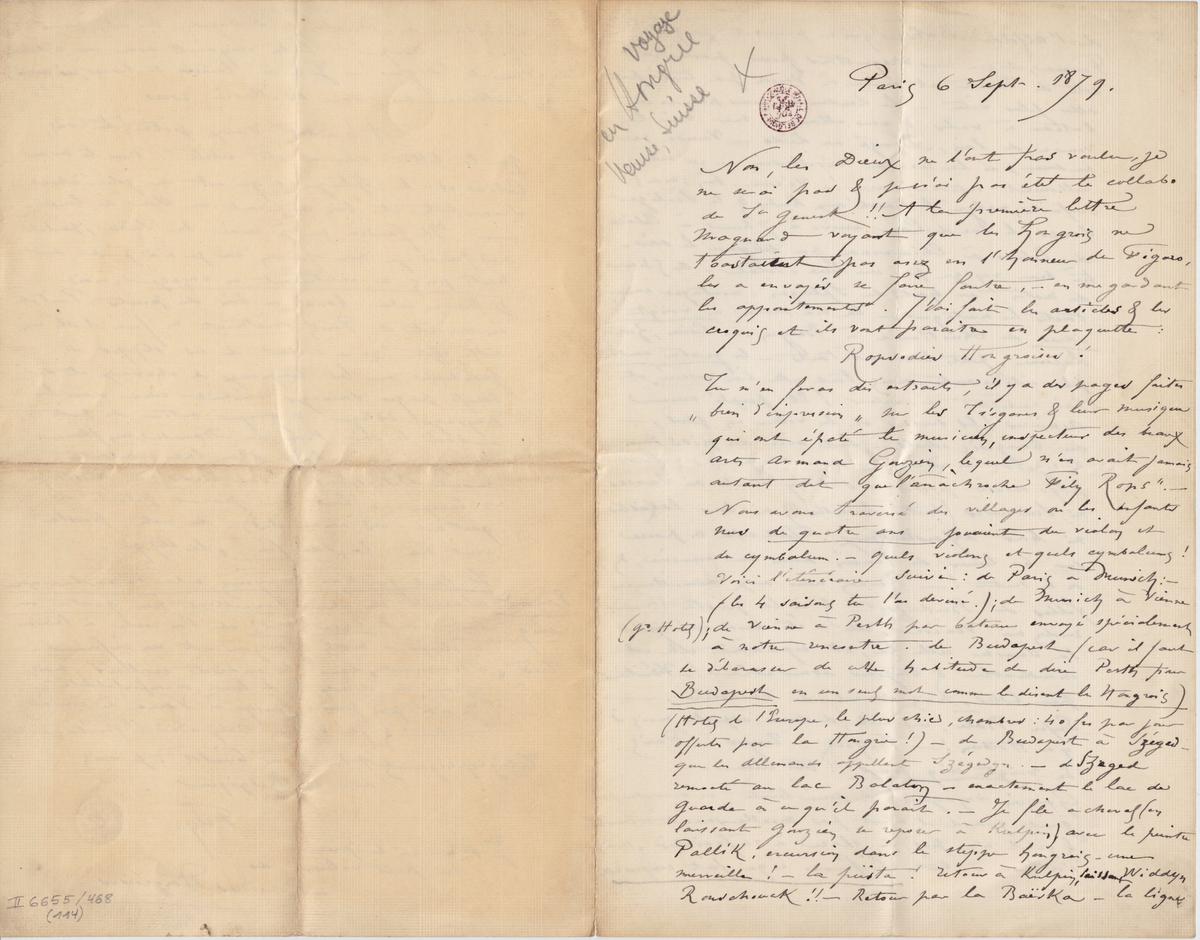 voyage
en Hongrie
Venise, Suisse
Paris 6 Sept. 1879.
Non, les Dieux ne l'ont pas voulu, je
ne serai pas & je n'ai pas été le collabo
de St Genest !! A la première lettre
Magnard voyant que les Hongrois ne
toastaient pas assez en l'honneur du Figaro,
les a envoyés se faire foutre, – en me gardant
les appointements. J'ai fait les articles & les
croquis et ils vont paraitre en plaquette :
Ropsodies Hongroises !
Tu m'en feras des extraits, il y a des pages faites
„ bien d'impression „ sur les Tsiganes & leur musique
qui ont épaté le musicien, inspecteur des beaux
arts Armand Gouzien, lequel n'en avait jamais
autant dit que l'anachroche Fély Rops". –
Nous avons traversé des villages où les enfants
nus de quatre ans jouaient du violon et
du cymbalum. – quels violons et quels cymbalums !
Voici l'itinéraire suivi : de Paris à Munich : –
(les 4 saisons tu l'as deviné.) ; de Munich à Vienne
(gd Hotel) ; de Vienne à Pesth par bateau envoyé spécialement
à notre rencontre. de Budapest (car il faut
se débarasser de cette habitude de dire Pesth pour
Budapest en un seul mot comme le disent les Hongrois)
(Hotel de l'Europe, le plus chic, chambres : 40 frs par jour
offertes par la Hongrie !) – de Budapest à Széged –
que les allemands appellent Szégédyn. – de Szeged
remonté au lac Balaton – exactement le lac de
Guarda à ce qu'il parait. – Je file a cheval (en
laissant Gouzien se reposer à Kulpin) avec le peintre
Pallik, excursion dans le steppe hongrois – une
merveille ! – la pusta ! retour à Kulpin, laissant Widdyn
Roustchouck !! – Retour par la Baèska – la ligne
II 6655/468
(114)